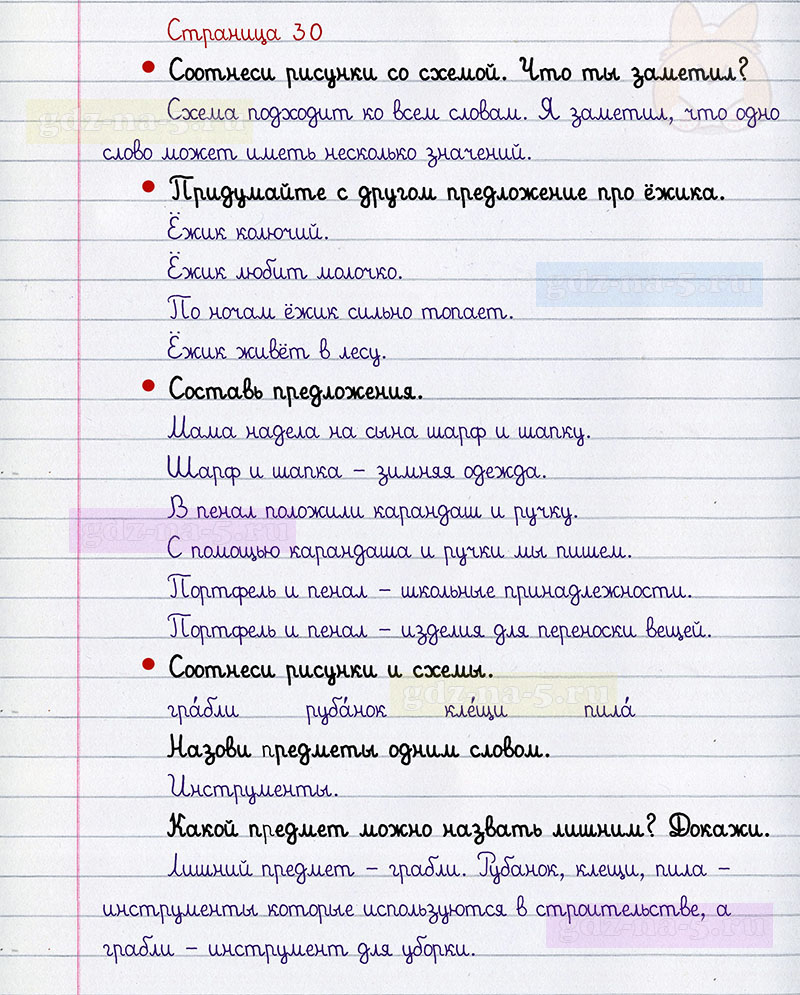 Страница 30
• Соотнеси рисунки со схемой. Что ты заметил?
Схема подходит ко всем словам. Я заметил, что одно
слово может иметь несколько значений.
• Придумайте с другом предложение про ёжика.
Ёжик колючий.
Ёжик любит молочко.
По ночам ёжик сильно топает.
Ёжик живёт в лесу.
• Составь предложения.
Мама надела на сына шарф и шапку.
Шарф и шапка – зимняя одежда.
В пенал положили карандаш и ручку.
С помощью карандаша и ручки мы пишем.
Портфель и пенал – школьные принадлежности.
Портфель и пенал – изделия для переноски вещей.
• Соотнеси рисунки и схемы.
гра́бли руба́нок кле́щи пила́
Назови предметы одним словом.
Инструменты.
Какой предмет можно назвать лишним? Докажи.
Лишний предмет – грабли. Рубанок, клещи, пила –
инструменты которые используются в строительстве, а
грабли – инструмент для уборки.
gdz-na-5.ru
gdz-na-5.ru
gdz-na-5.ru
gdz-na-5.ru
gdz-na-5.ru